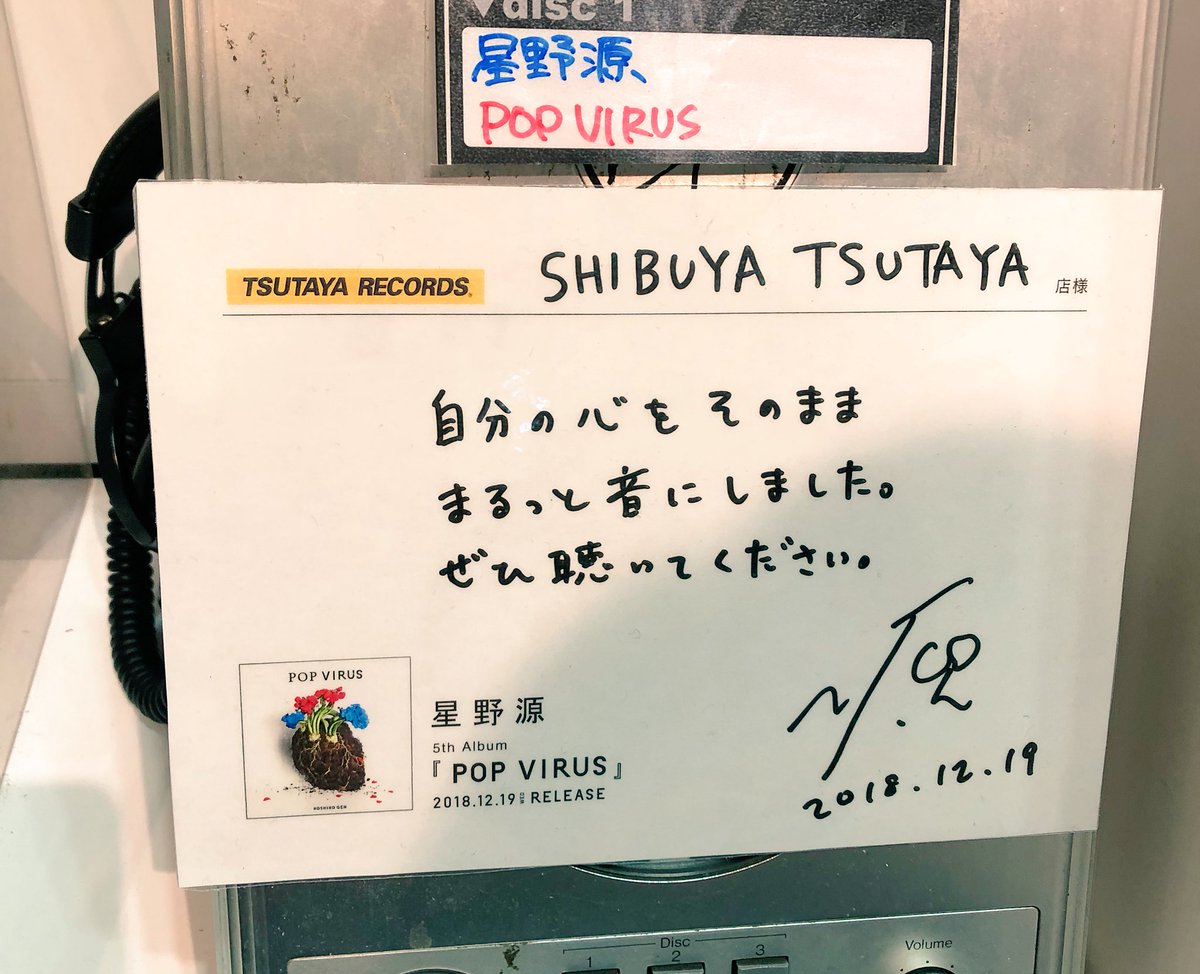 ▼disc 1
星野源、
POP VIRUS
TSUTAYA RECORDS SHIBUYA TSUTAYA 店様
自分の心をそのまま
まるっと音にしました。
ぜひ聴いてください。
POP VIRUS
HOSHINO GEN
星野源
5th Album
『POP VIRUS』
2018.12.19 RELEASE
2018.12.19
Disc
1 2 3
Volume